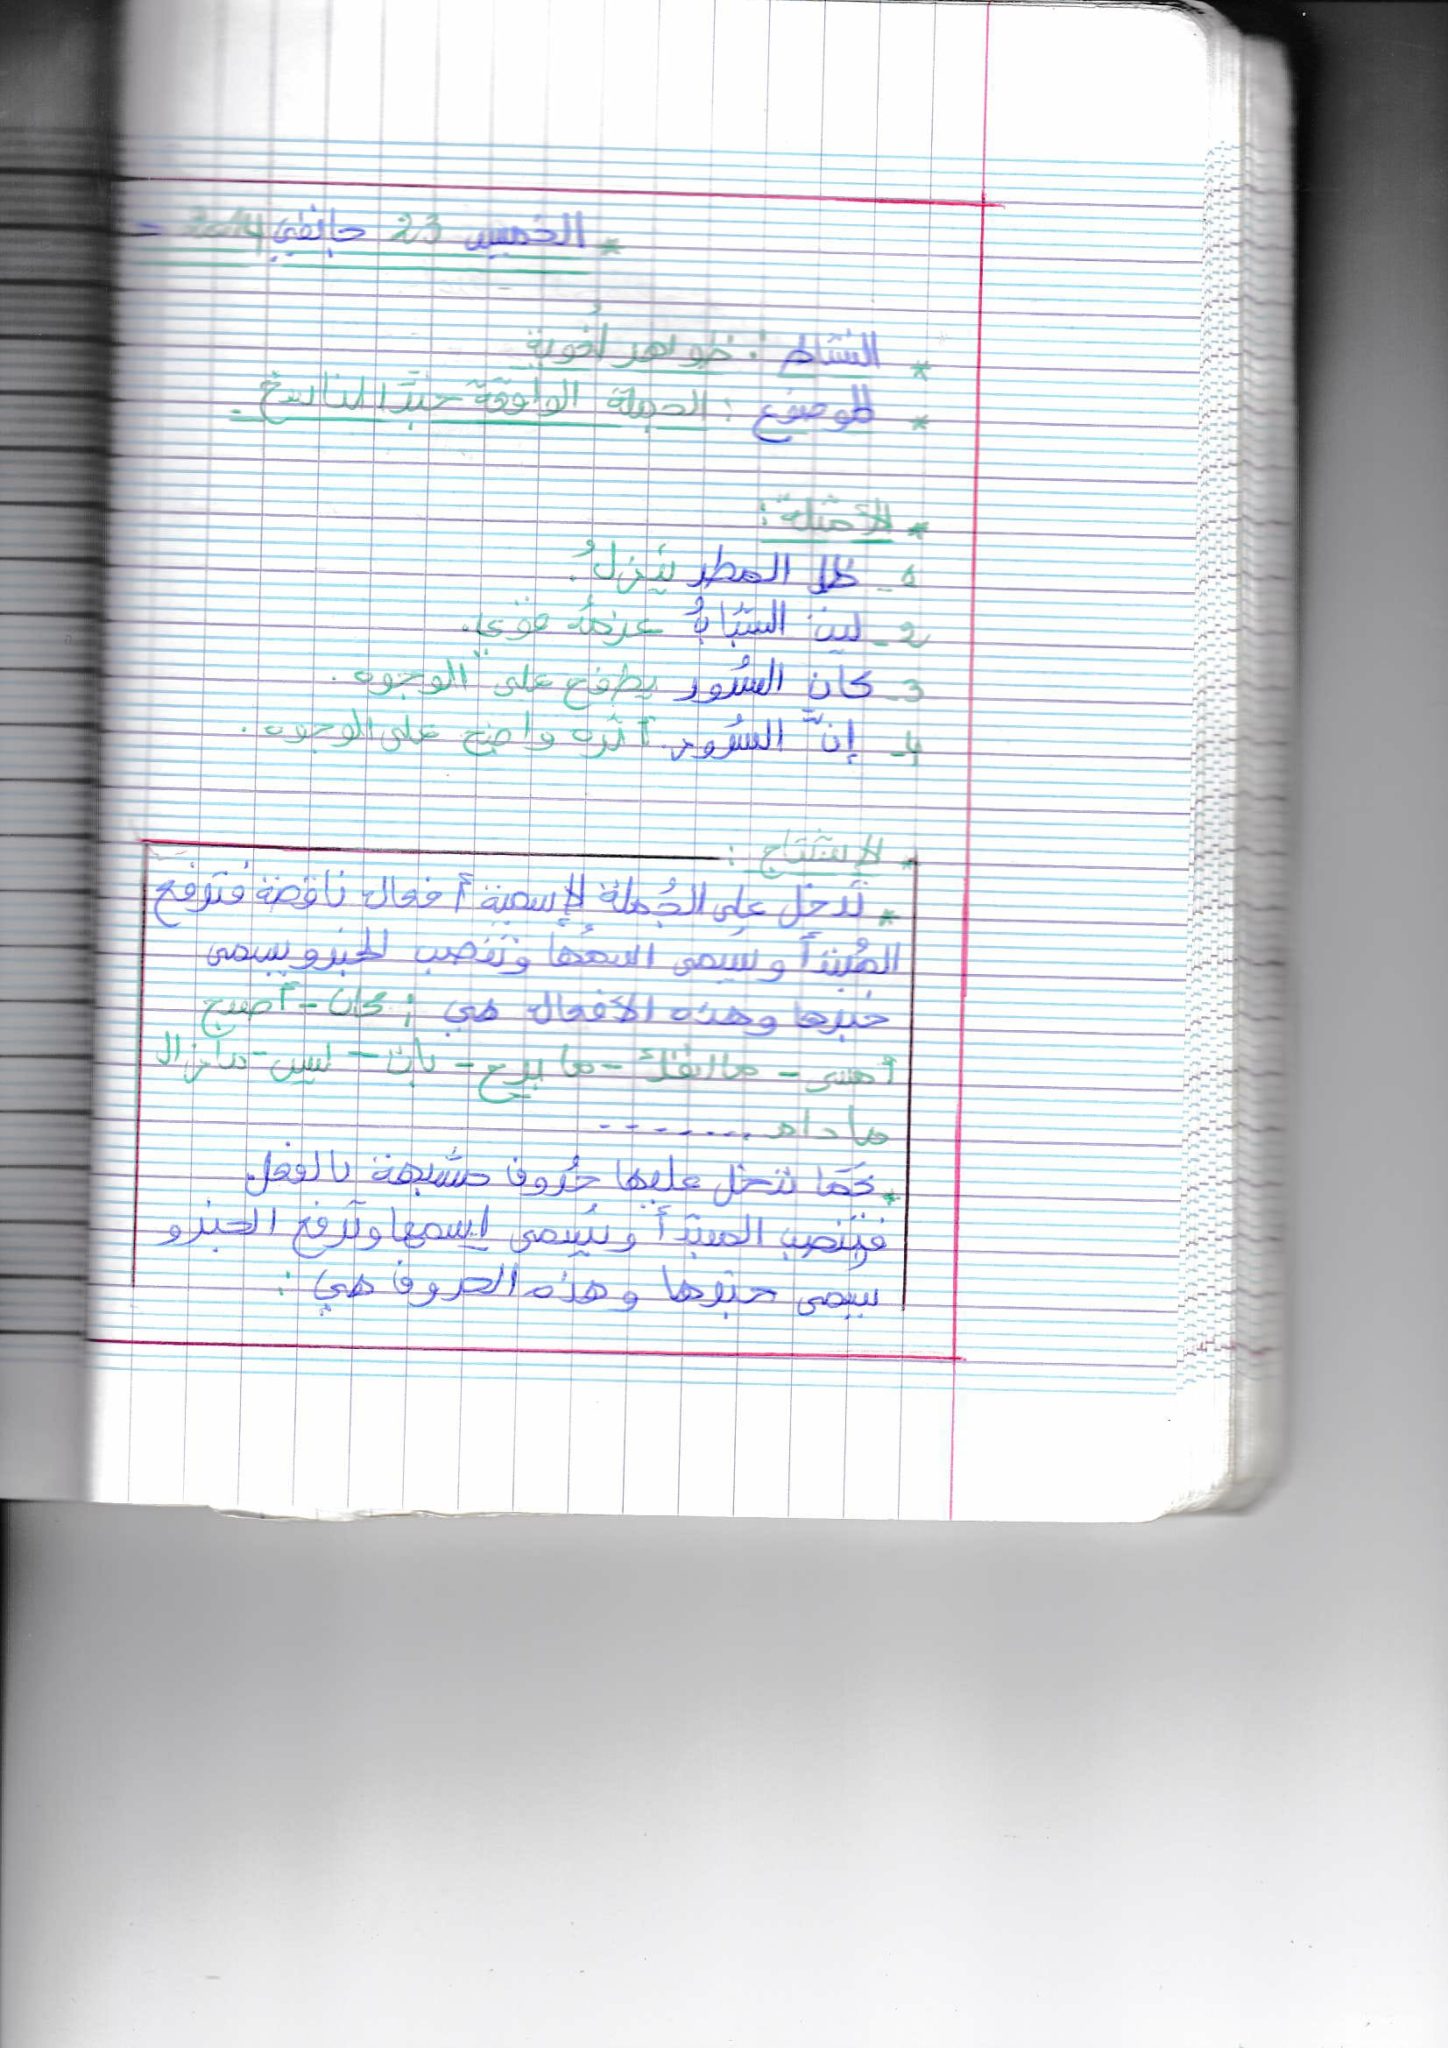 * الخميس 23 جانفي 2014 -
* النشاط : ظواهر لغوية
* الموضوع : الجملة الواقعة خبرًا لناسخ .
* الأمثلة :
1- ظل المطر ينزلُ .
2- ليت الشبابُ عزمه قوي .
3- كان السُور يطفح على الوجوه .
4- إنّ السُور أثره واضح على الوجوه .
* الإستنتاج :
* تدخل على الجُملة الإسمية أفعال ناقصة فترفع
المُبتدأ ويسمى اسمُها وتنصب الخبر ويسمى
خبرها وهذه الأفعال هي : كان - أصبح
أمسى - ما انفك - ما برح - بات - ليس - مازال
ما دام .......
* كمَا تدخل عليها حُروف مشبهة بالفعل
فتنصب المبتدأ ويُسمى إسمها وترفع الخبر و
يسمى خبرها وهذه الحروف هي :